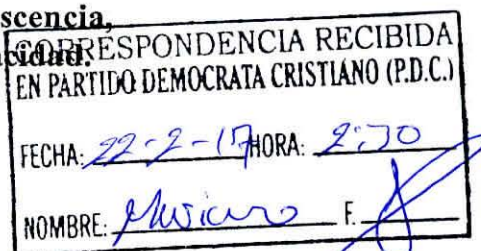 scencia,
acidad.
CORRESPONDENCIA RECIBIDA
EN PARTIDO DEMOCRATA CRISTIANO (P.D.C.)
FECHA: 22-2-17 HORA: 2:30
NOMBRE: F.